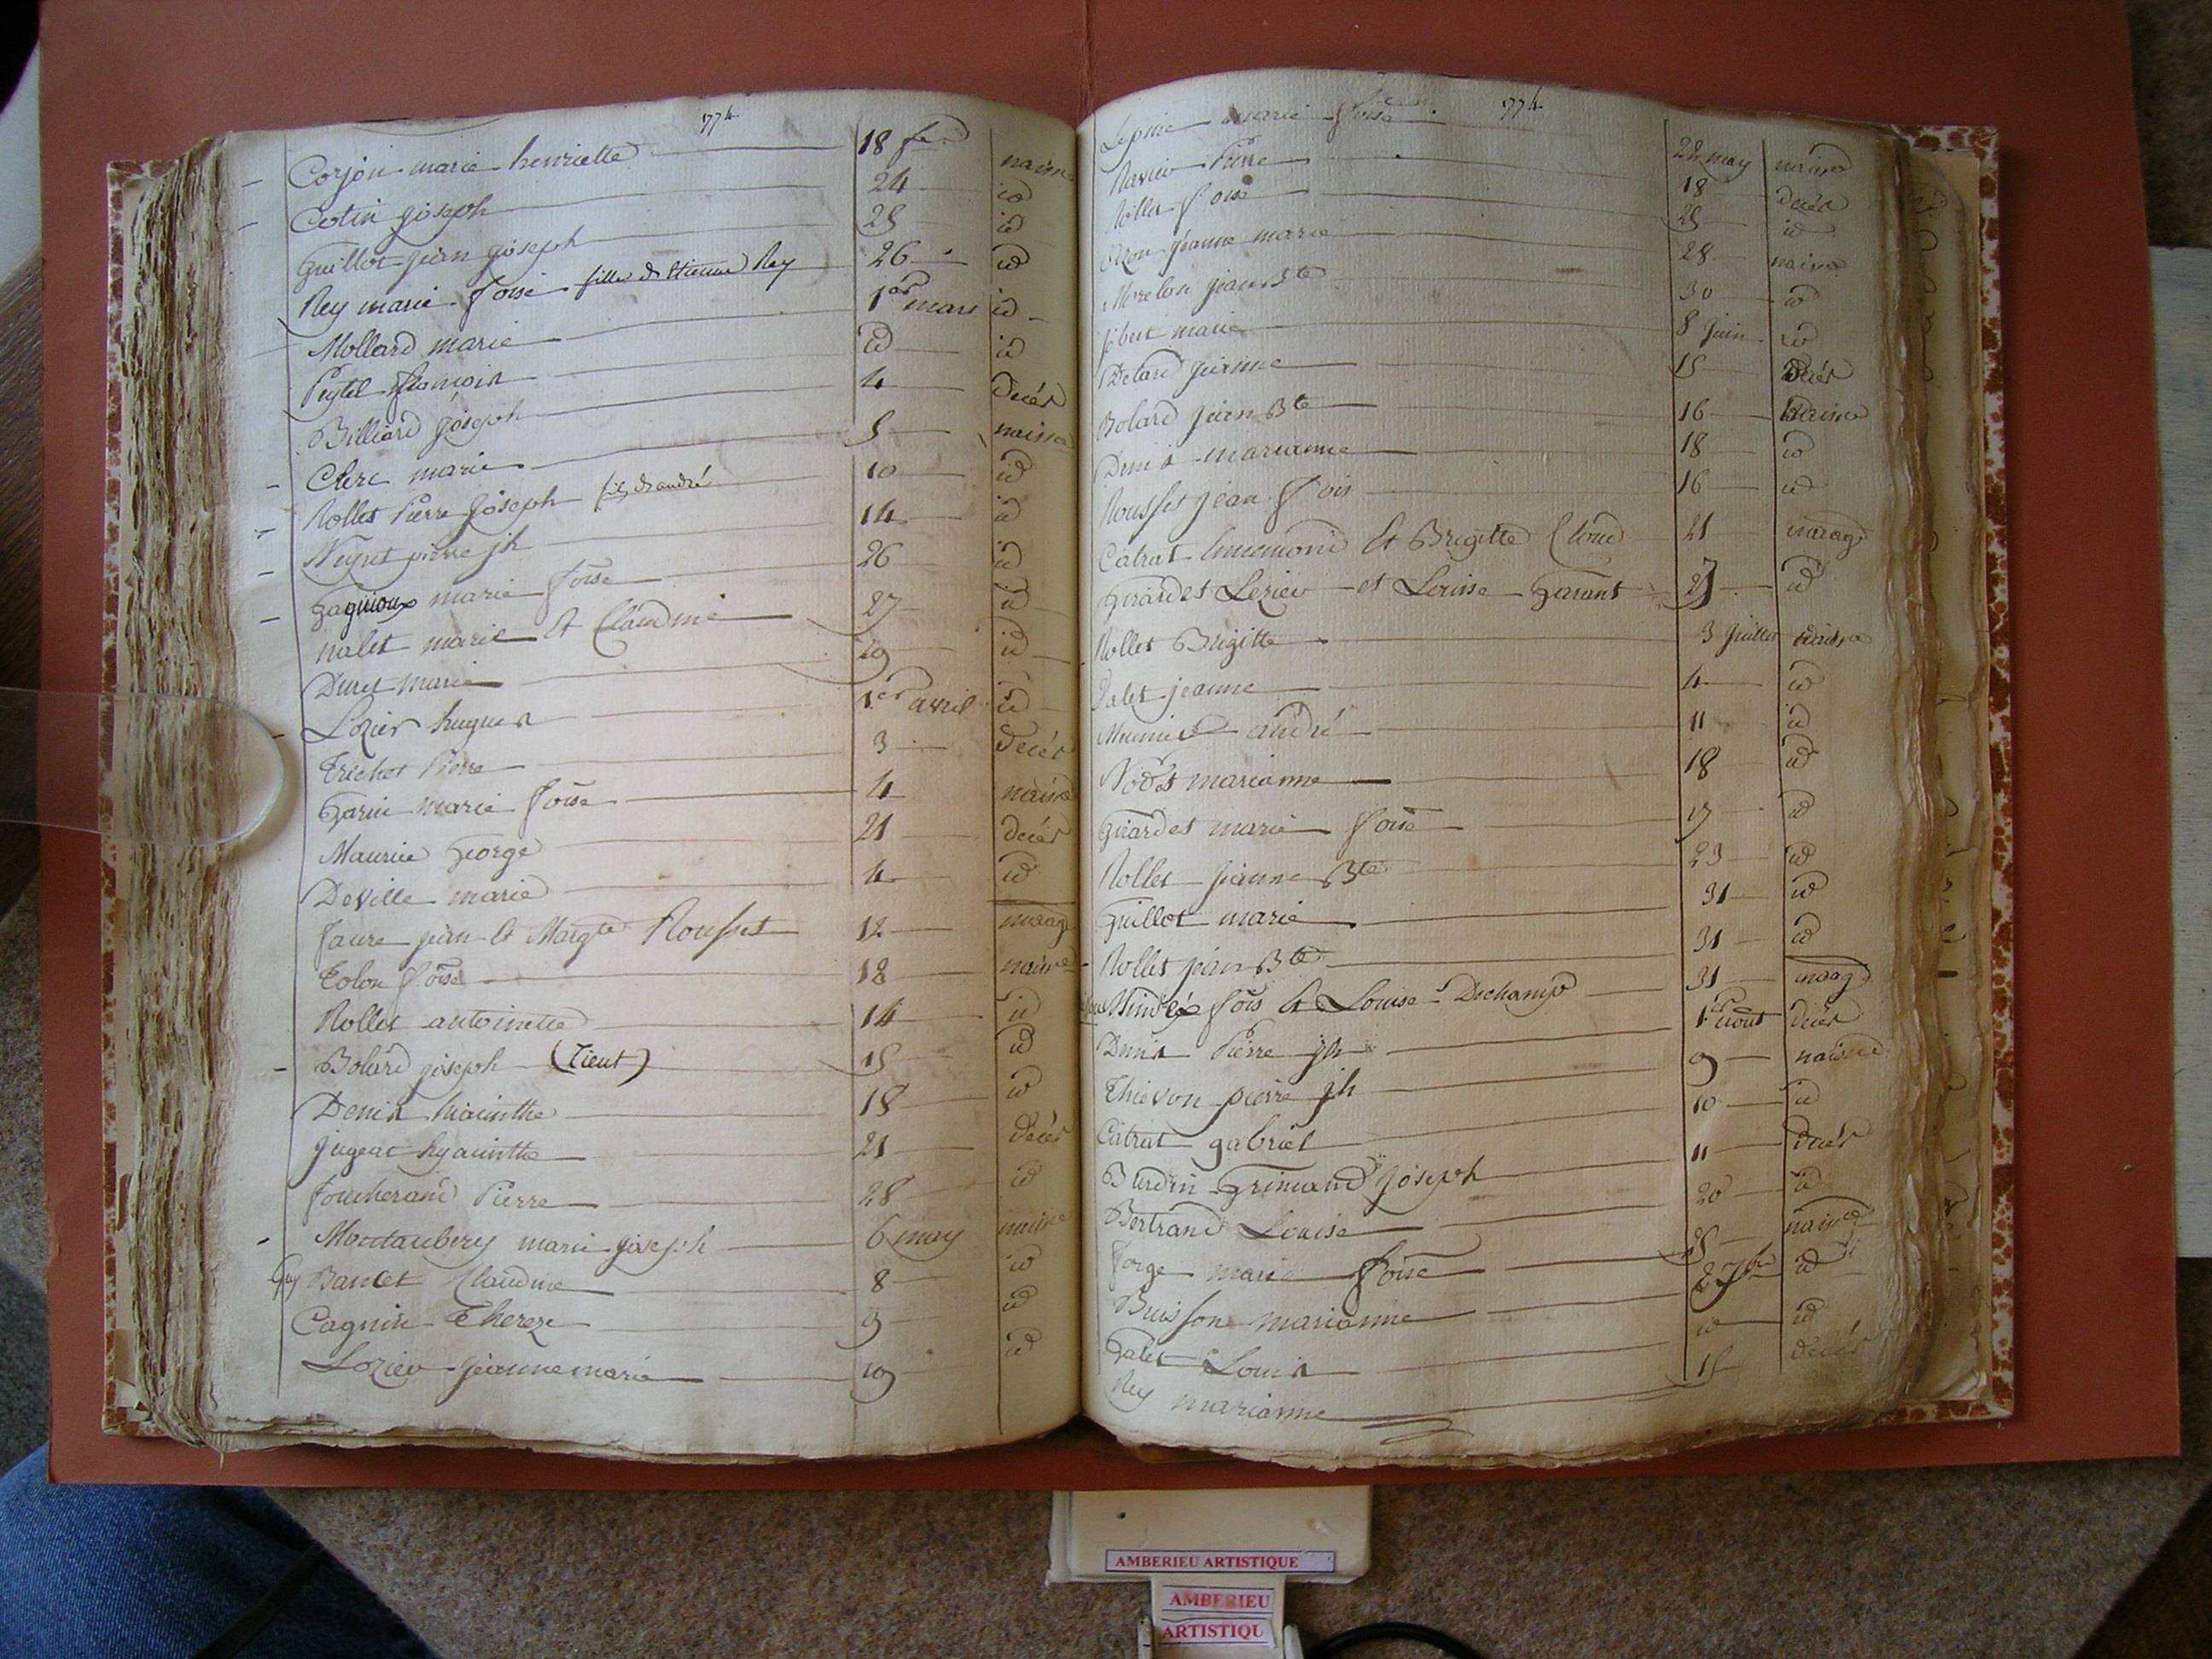 774
Corjon marie henriette 18 fer naisce
Cotin joseph 24 id
Guillot jean joseph 25 id
Rey marie foise fille d etienne Rey 26 id
Mollard marie 1er mars id
Peytel francois id id
Billiard joseph 4 décés
Clerc marie 5 naisce
Rollet Pierre Joseph fils d andré 10 id
Neyret pierre jh 14 id
Gagnioux marie foise 26 id
nalet marie et Claudine 27 id
Duret marie 29 id
Lozier hugues 1er avril id
Trichot Pierre 3 decés
Garin marie foise 4 naisce
Maurice George 21 decés
Deville marie 4 id
faure jean et Margte Rousset 12 mariag
Tolon foise 12 naisce
Rollet antoinette 14 id
Bolard joseph (Tient) 15 id
Denis hiacinthe 18 id
jugeat hyacinthe 21 décés
foucherand Pierre 28 id
Montaubery marie joseph 6 may naisce
Bancet Claudine 8 id
Cagnin Thereze 9 id
Loziev jeanne marie 10 id
774
Lepine marie foise 22 may naisce
Ravier Pierre 18 decés
Rollet foise 25 id
Orzon jeanne marie 28 naisce
Morelon jean Bte 30 id
jobert marie 8 juin id
Debard jeanne 15 décés
Bolard jean Bte 16 naisce
Denis marianne 18 id
Rousset jean fois 16 id
Catrat Anemond et Brigitte Cloud 21 mariag
Girardet Loziev et Louise Garant 27 id
Rollet Brigitte 3 juillet naisce
Valet jeanne 4 id
Meunier andré 11 id
Nodet marianne 18 id
Girardet marie foise 19 id
Rollet jeanne Bte 23 id
Guillot marie 31 id
Rollet jean Bte 31 id
fois et Louise Dechamp 31 mariag
Denis Pierre jh 1er août décés
Thievon pierre jh 9 naisce
Catrat gabriel 10 id
Burdin Grimand joseph 11 décés
Bertrand Louise 20 id
Forge marie foise 25 naisce
Buisson marianne 2 7bre id
Galet Louis id id
Rey marianne 15 decés
AMBERIEU ARTISTIQUE
AMBERIEU
ARTISTIQU